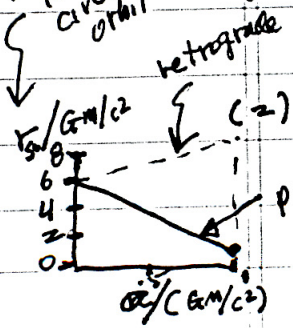 circ
orbit
retrograde
(2)
/GM/c²
8
6
4
2
0
P
/(GM/c²)